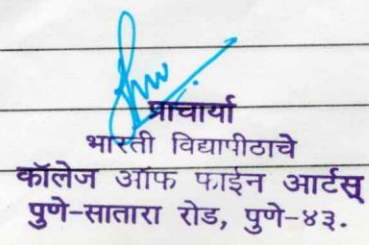 प्राचार्या
भारती विद्यापीठाचे
कॉलेज ऑफ फाईन आर्टस्
पुणे-सातारा रोड, पुणे-४३.